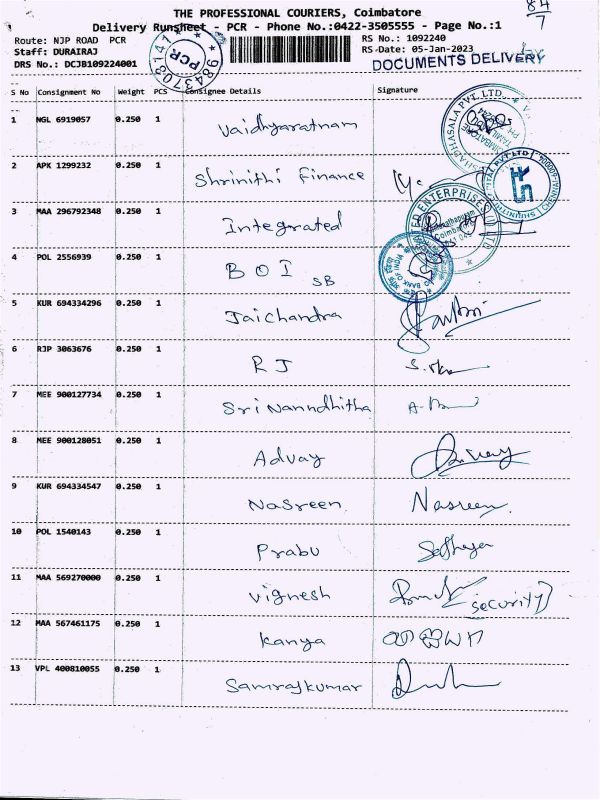 84
7
THE PROFESSIONAL COURIERS, Coimbatore
Delivery Runsheet - PCR - Phone No.:0422-3505555 - Page No.:1
Route: NJP ROAD PCR
RS No.: 1092240
Staff: DURAIRAJ
RS-Date: 05-Jan-2023
DRS No.: DCJB109224001
DOCUMENTS DELIVERY
PCR
9843708141
S No Consignment No Weight PCS Consignee Details Signature
1 NGL 6919057 0.250 1 Vaidhyaratnam
2 APK 1299232 0.250 1 Shrinithi Finance
3 MAA 296792348 0.250 1 Integrated
4 POL 2556939 0.250 1 BOI SB
5 KUR 694334296 0.250 1 Jaichandra
6 RJP 3063676 0.250 1 RJ
7 MEE 900127734 0.250 1 Sri Nanndhitha
8 MEE 900128051 0.250 1 Advay
9 KUR 694334547 0.250 1 Nasreen Nasreen
10 POL 1540143 0.250 1 Prabu
11 MAA 569270000 0.250 1 Vignesh security
12 MAA 567461175 0.250 1 Kanya
13 VPL 400810055 0.250 1 Samrajkumar